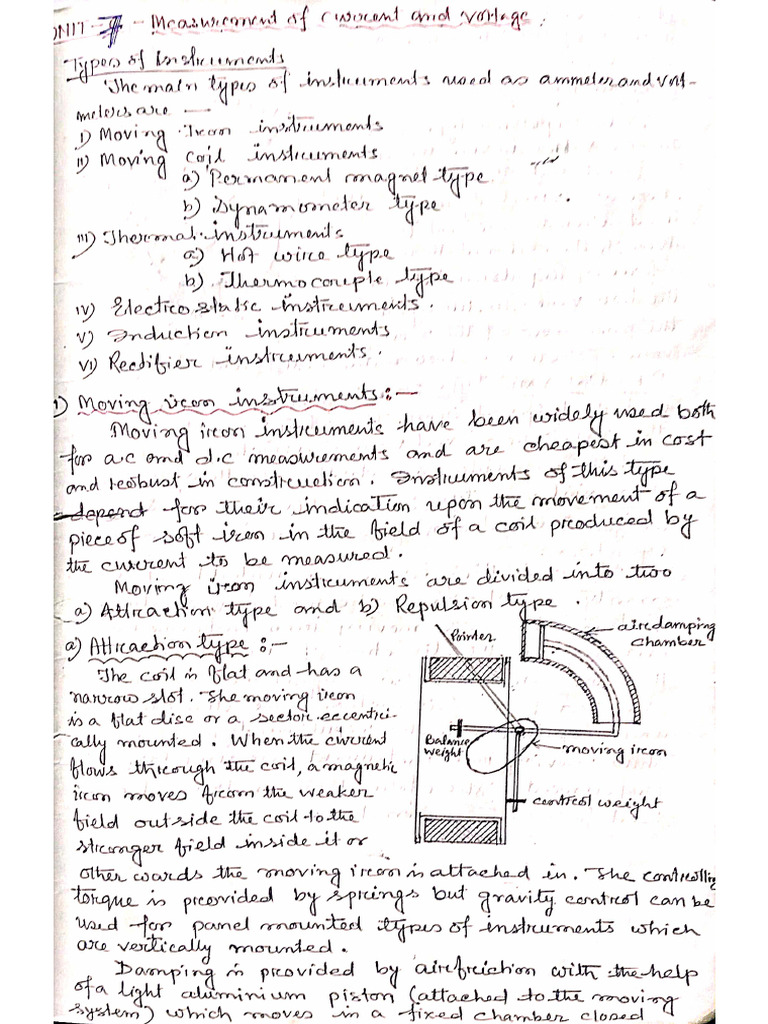 UNIT-7 - Measurement of current and voltage.
Types of Instruments
The main types of instruments used as ammeter and volt-
meters are —
I) Moving Iron instruments
II) Moving coil instruments
a) Permanent magnet type
b) Dynamometer type
III) Thermal instruments
a) Hot wire type
b) Thermocouple type
IV) Electrostatic instruments.
V) Induction instruments
VI) Rectifier instruments.
1) Moving iron instruments :—
Moving iron instruments have been widely used both
for a.c and d.c measurements and are cheapest in cost
and robust in construction. Instruments of this type
depend for their indication upon the movement of a
piece of soft iron in the field of a coil produced by
the current to be measured.
Moving iron instruments are divided into two
a) Attraction type and b) Repulsion type.
a) Attraction type :—
The coil is flat and has a
narrow slot. The moving iron
is a flat disc or a sector eccentri-
cally mounted. When the current
flows through the coil, a magnetic
iron moves from the weaker
field outside the coil to the
stronger field inside it or
Pointer
air damping
chamber
Balance
weight
moving iron
control weight
other wards the moving iron is attached in. The controlling
torque is provided by springs but gravity control can be
used for panel mounted types of instruments which
are vertically mounted.
Damping is provided by air friction with the help
of a light aluminium piston (attached to the moving
system) which moves in a fixed chamber closed